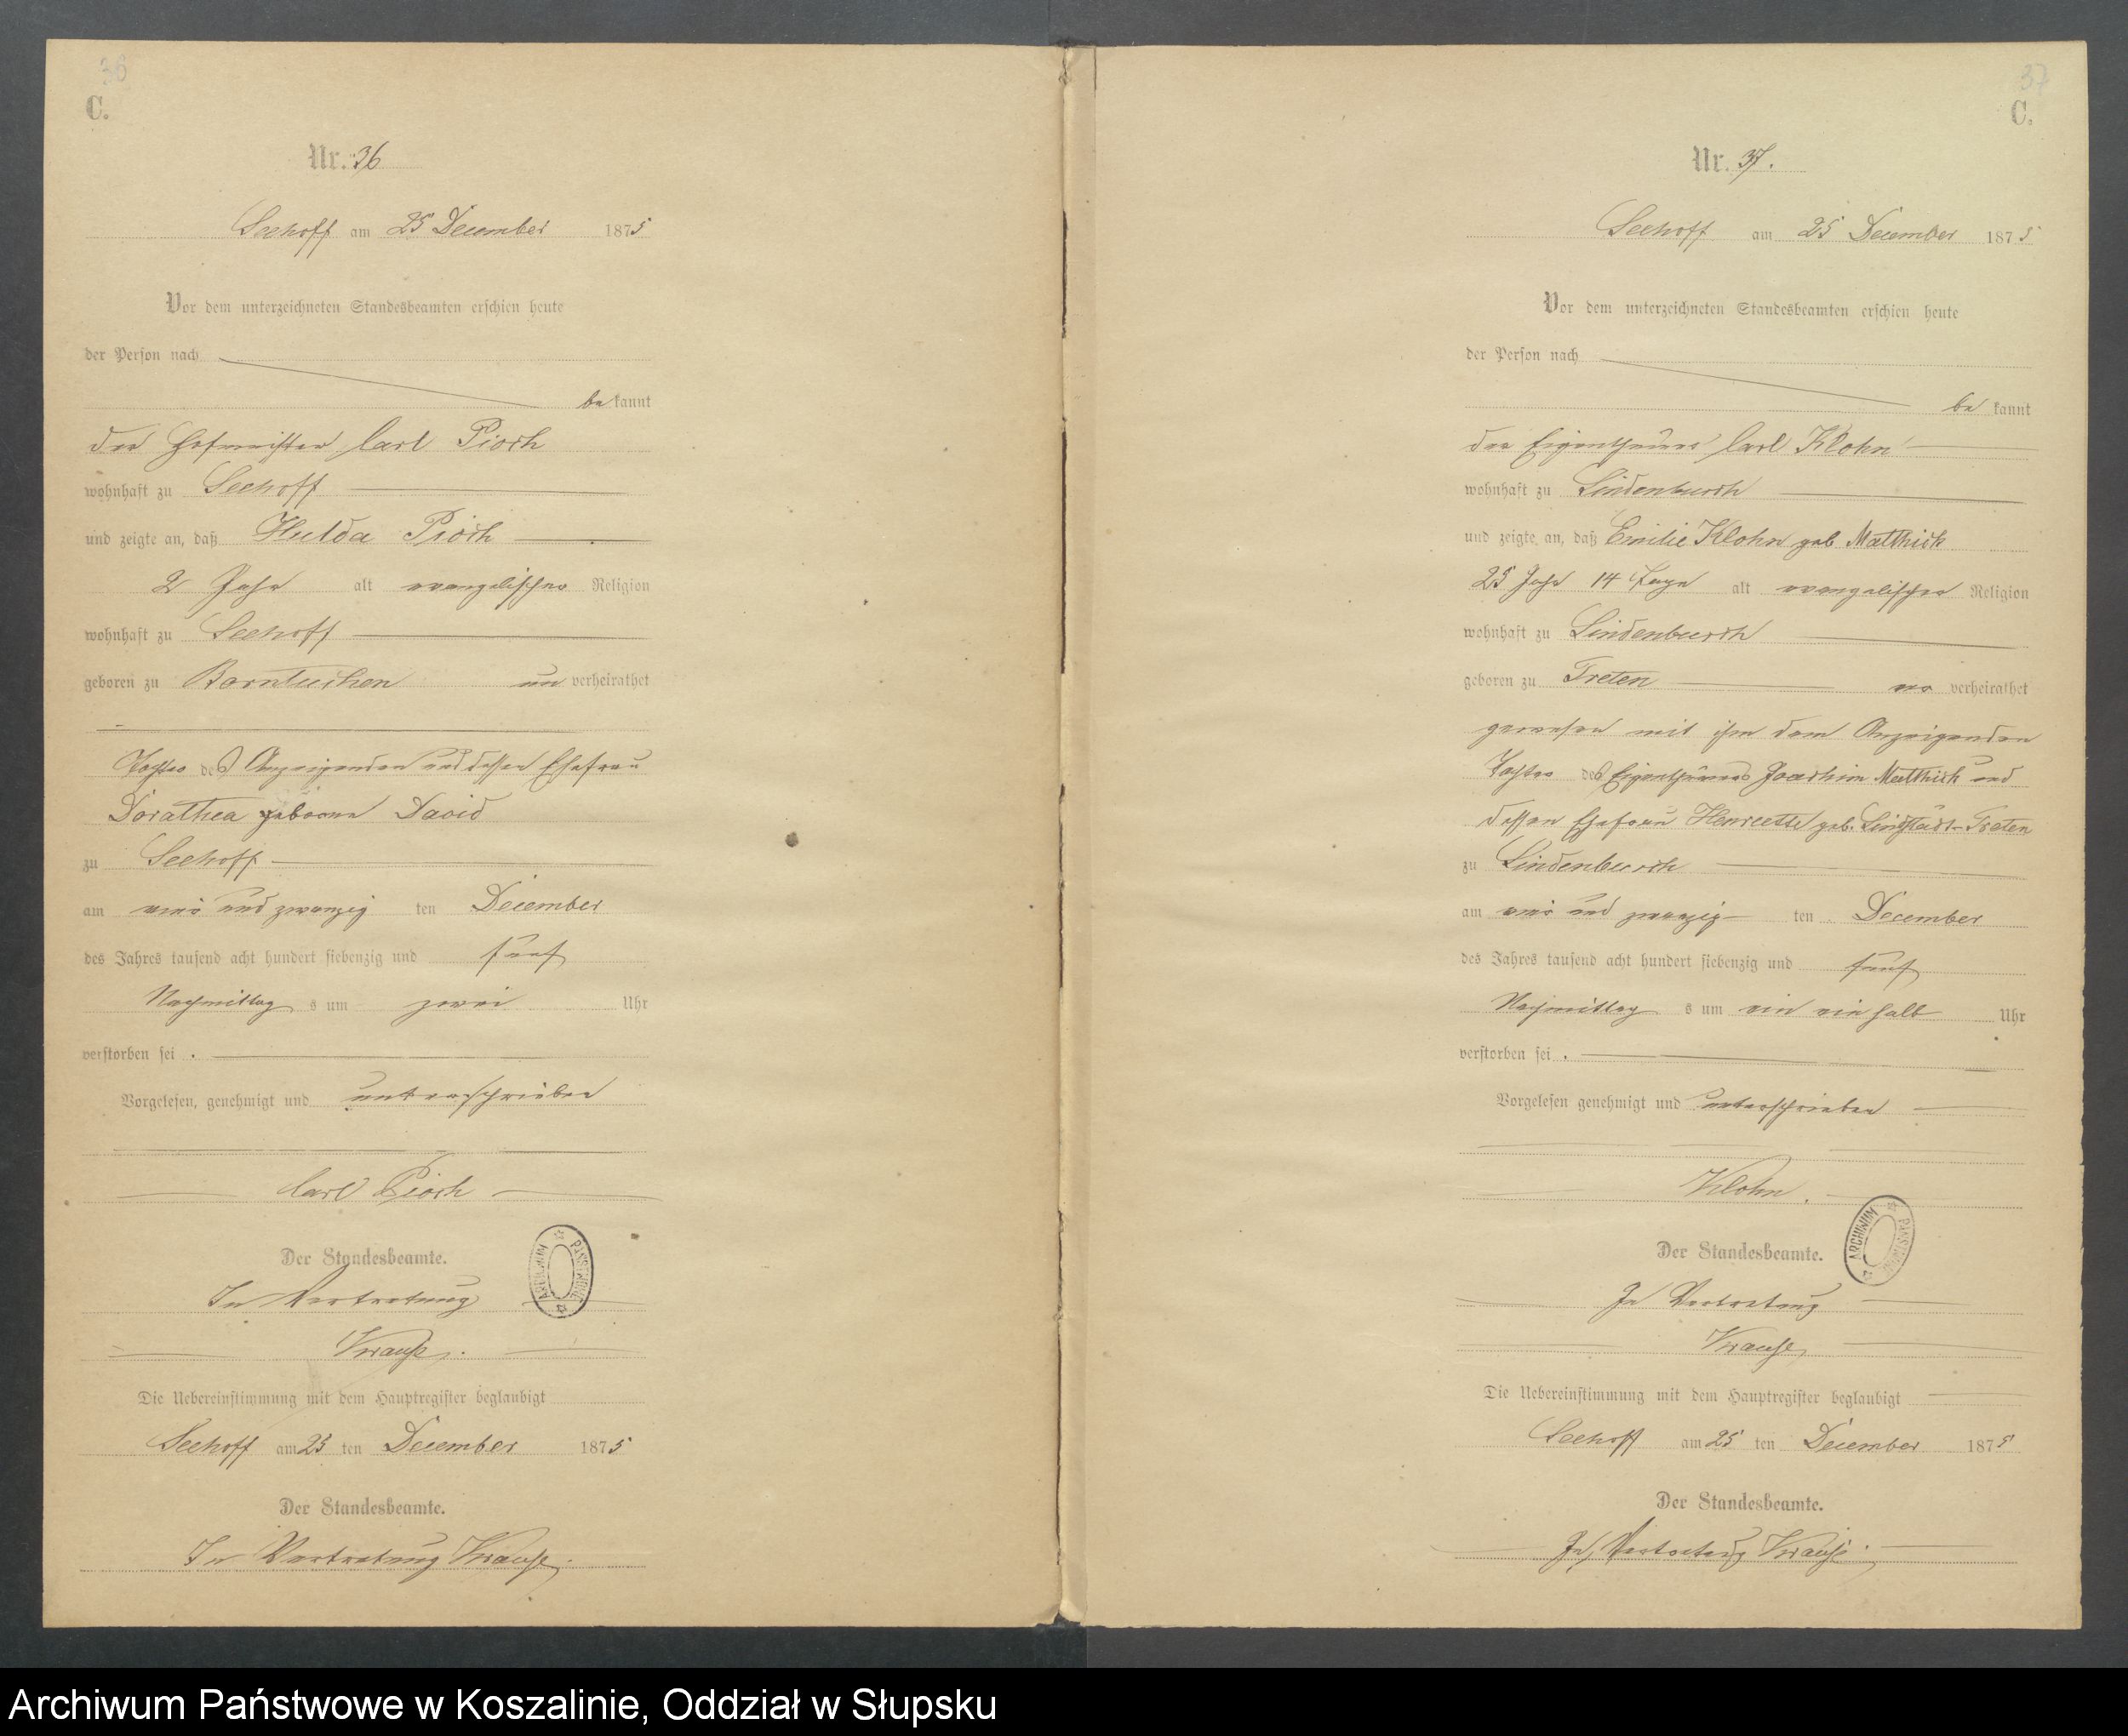 36
C.
Nr. 36
Seehoff am 25 December 1875
Vor dem unterzeichneten Standesbeamten erschien heute
der Person nach
be kannt
der Hofmeister Carl Pioch
wohnhaft zu Seehoff
und zeigte an, daß Hulda Pioch
2 Jahr alt evangelischer Religion
wohnhaft zu Seehoff
geboren zu Borntuchen un verheirathet
Tochter des Anzeigenden und dessen Ehefrau
Dorathea geborene David
zu Seehoff
am vier und zwanzig ten December
des Jahres tausend acht hundert siebenzig und fünf
Nachmittag s um zwei Uhr
verstorben sei .
Vorgelesen, genehmigt und unterschrieben
Carl Pioch
Der Standesbeamte.
ARCHIWUM PAŃSTWOWE
In Vertretung
Krause.
Die Uebereinstimmung mit dem Hauptregister beglaubigt
Seehoff am 25 ten December 1875
Der Standesbeamte.
In Vertretung Krause.
37
C.
Nr. 37.
Seehoff am 25 December 1875
Vor dem unterzeichneten Standesbeamten erschien heute
der Person nach
be kannt
der Eigenthümer Carl Klohn
wohnhaft zu Lindenbusch
und zeigte an, daß Emilie Klohn geb. Matthick
25 Jahr 14 Tage alt evangelischer Religion
wohnhaft zu Lindenbusch
geboren zu Treten ver verheirathet
gewesen mit ihm dem Anzeigenden
Tochter des Eigenthümers Joachim Matthick und
dessen Ehefrau Henreette geb. Lingstädt-Treten
zu Lindenbusch
am vier und zwanzig ten December
des Jahres tausend acht hundert siebenzig und fünf
Nachmittag s um ein ein halb Uhr
verstorben sei .
Vorgelesen genehmigt und unterschrieben
Klohn.
Der Standesbeamte.
ARCHIWUM PAŃSTWOWE
In Vertretung
Krause
Die Uebereinstimmung mit dem Hauptregister beglaubigt
Seehoff am 25 ten December 1875
Der Standesbeamte.
In Vertretung Krause.
Archiwum Państwowe w Koszalinie, Oddział w Słupsku